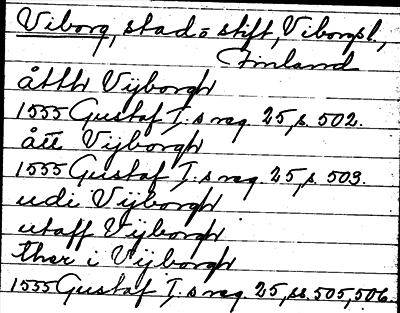 Viborg, stad o stift, Viborgsl.,
Finland
åtth Vijborgh
1555 Gustaf I:s reg. 25, s. 502.
ått Vijborgh
1555 Gustaf I:s reg. 25, s. 503.
udi Vijborgh
utaff Vijborgh
ther i Vijborgh
1555 Gustaf I:s reg. 25, ss. 505, 506.